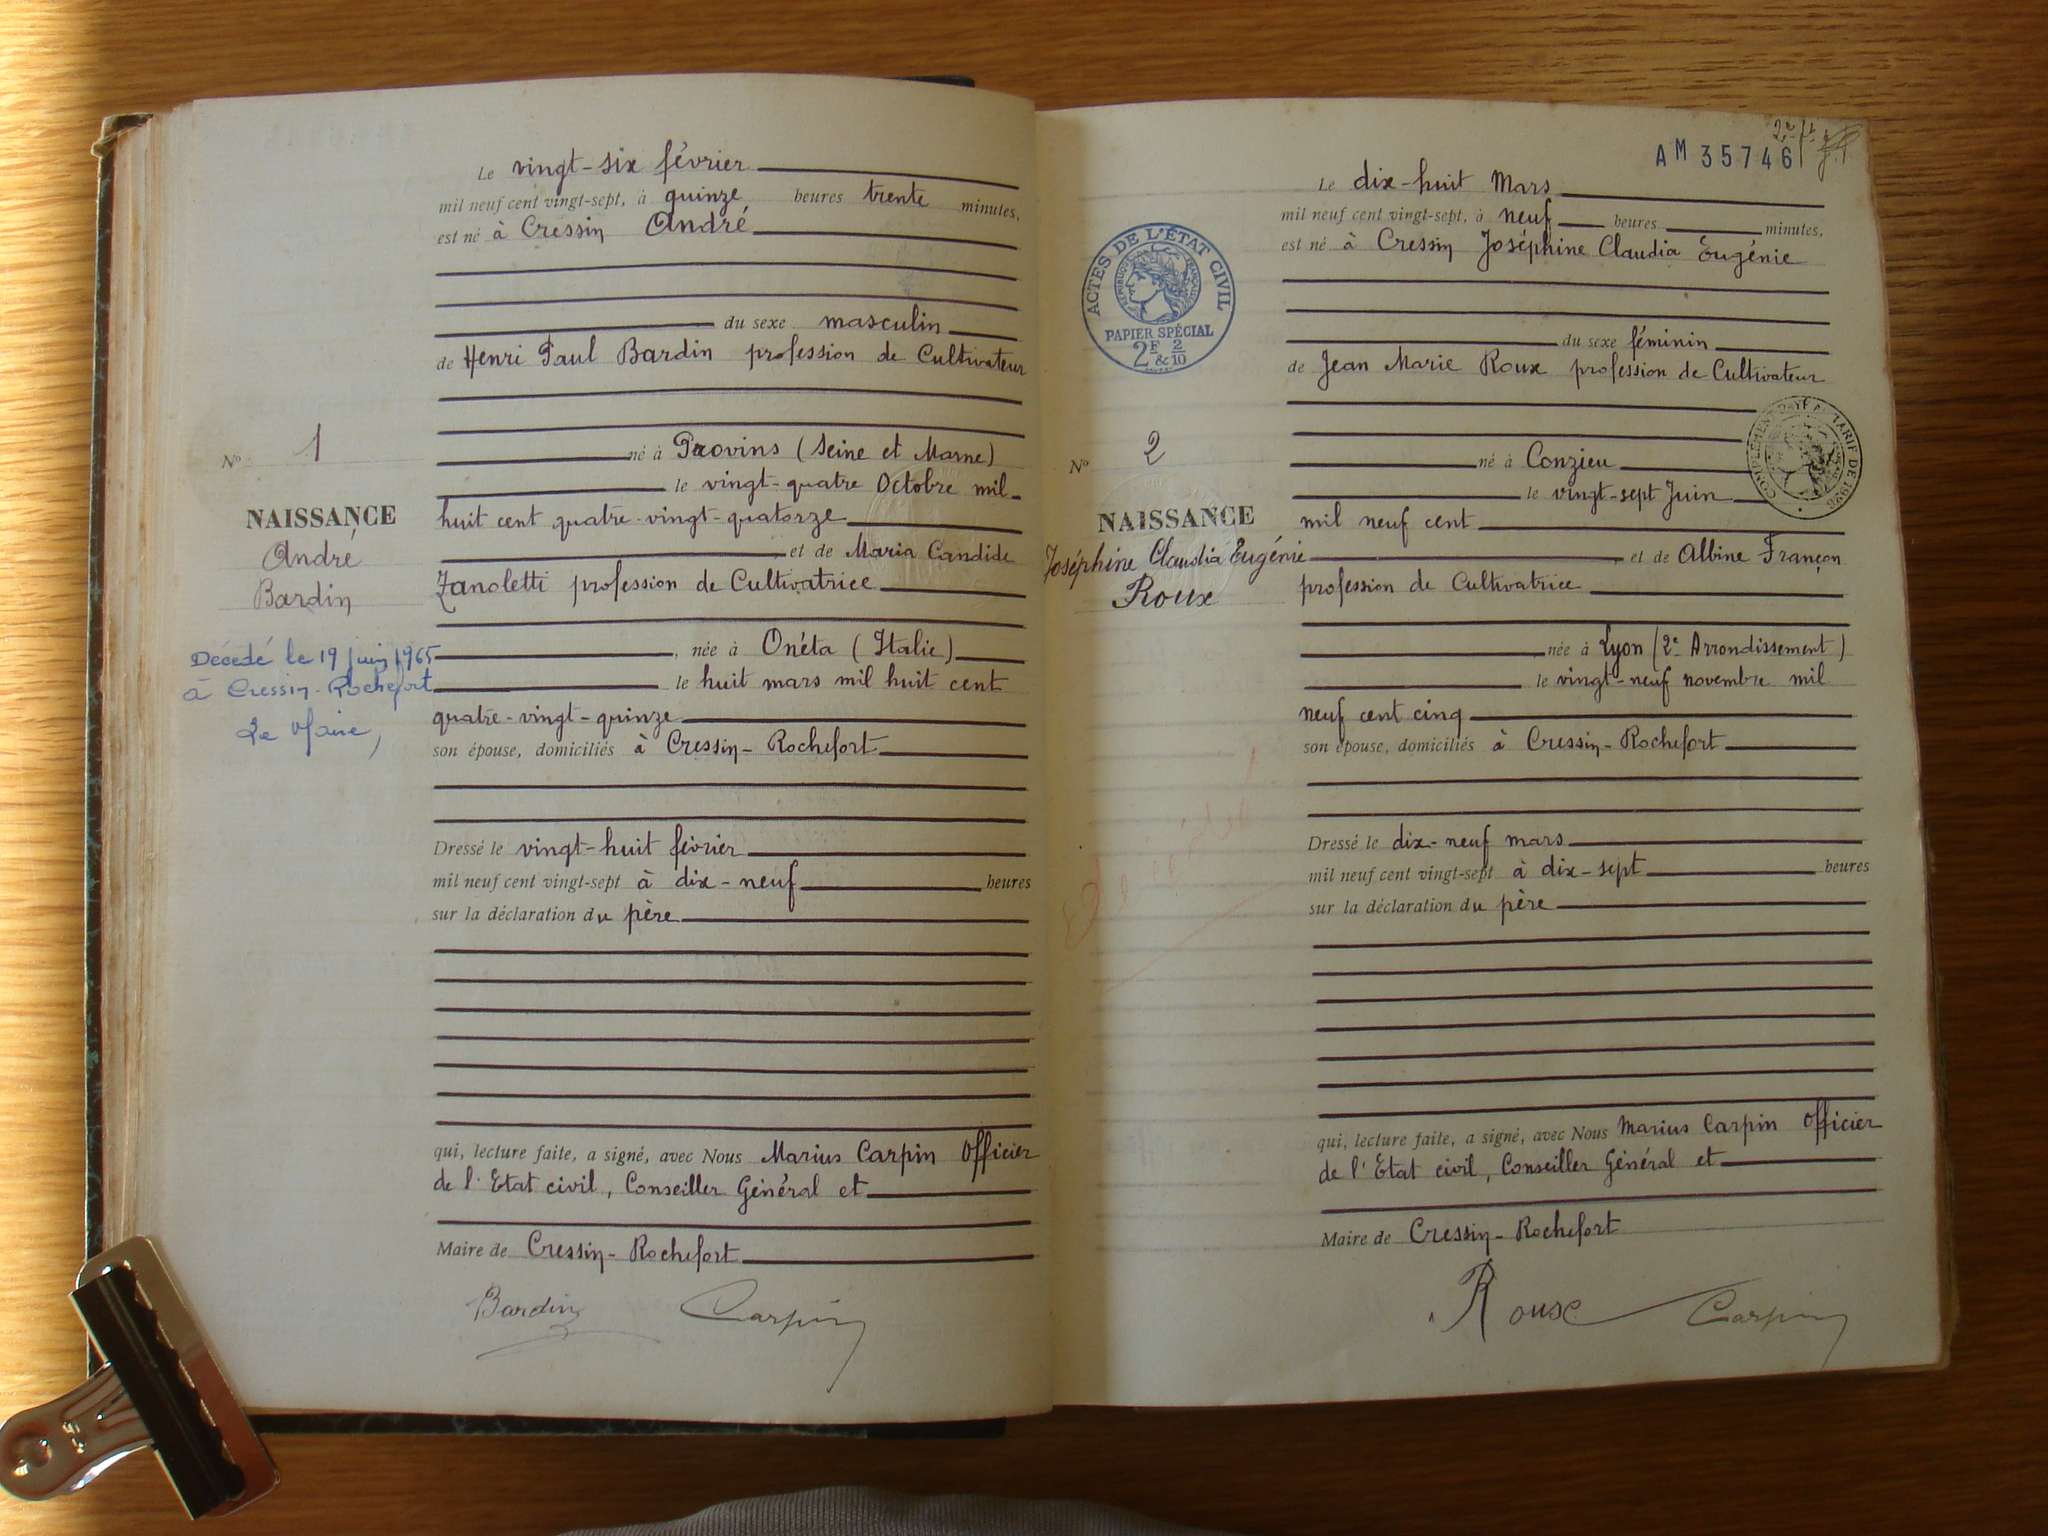 Le vingt-six février
mil neuf cent vingt-sept, à quinze heures trente minutes,
est né à Cressin André
du sexe masculin
de Henri Paul Bardin profession de Cultivateur
né à Provins (Seine et Marne)
le vingt-quatre Octobre mil
huit cent quatre-vingt-quatorze
et de Maria Candide
Zanoletti profession de Cultivatrice
, née à Onéta (Italie)
le huit mars mil huit cent
quatre-vingt-quinze
son épouse, domiciliés à Cressin-Rochefort
Dressé le vingt-huit février
mil neuf cent vingt-sept à dix-neuf heures
sur la déclaration du père
qui, lecture faite, a signé, avec Nous Marius Carpin Officier
de l'Etat civil, Conseiller Général et
Maire de Cressin-Rochefort
Bardin Carpin
N° 1
NAISSANCE
André
Bardin
Décédé le 19 juin 1965
à Cressin-Rochefort
Le Maire,
AM 35746
Le dix-huit Mars
mil neuf cent vingt-sept, à neuf heures minutes,
est né à Cressin Joséphine Claudia Eugénie
du sexe féminin
de Jean Marie Roux profession de Cultivateur
né à Conzieu
le vingt-sept Juin
mil neuf cent
et de Albine Françon
profession de Cultivatrice
née à Lyon (2e Arrondissement)
le vingt-neuf novembre mil
neuf cent cinq
son épouse, domiciliés à Cressin-Rochefort
Dressé le dix-neuf mars
mil neuf cent vingt-sept à dix-sept heures
sur la déclaration du père
qui, lecture faite, a signé, avec Nous Marius Carpin Officier
de l'Etat civil, Conseiller Général et
Maire de Cressin-Rochefort
Roux Carpin
ACTES DE L'ÉTAT CIVIL
RÉPUBLIQUE FRANÇAISE
PAPIER SPÉCIAL
2F & 2/10
N° 2
NAISSANCE
Joséphine Claudia Eugénie
Roux
TARIF DE 1926